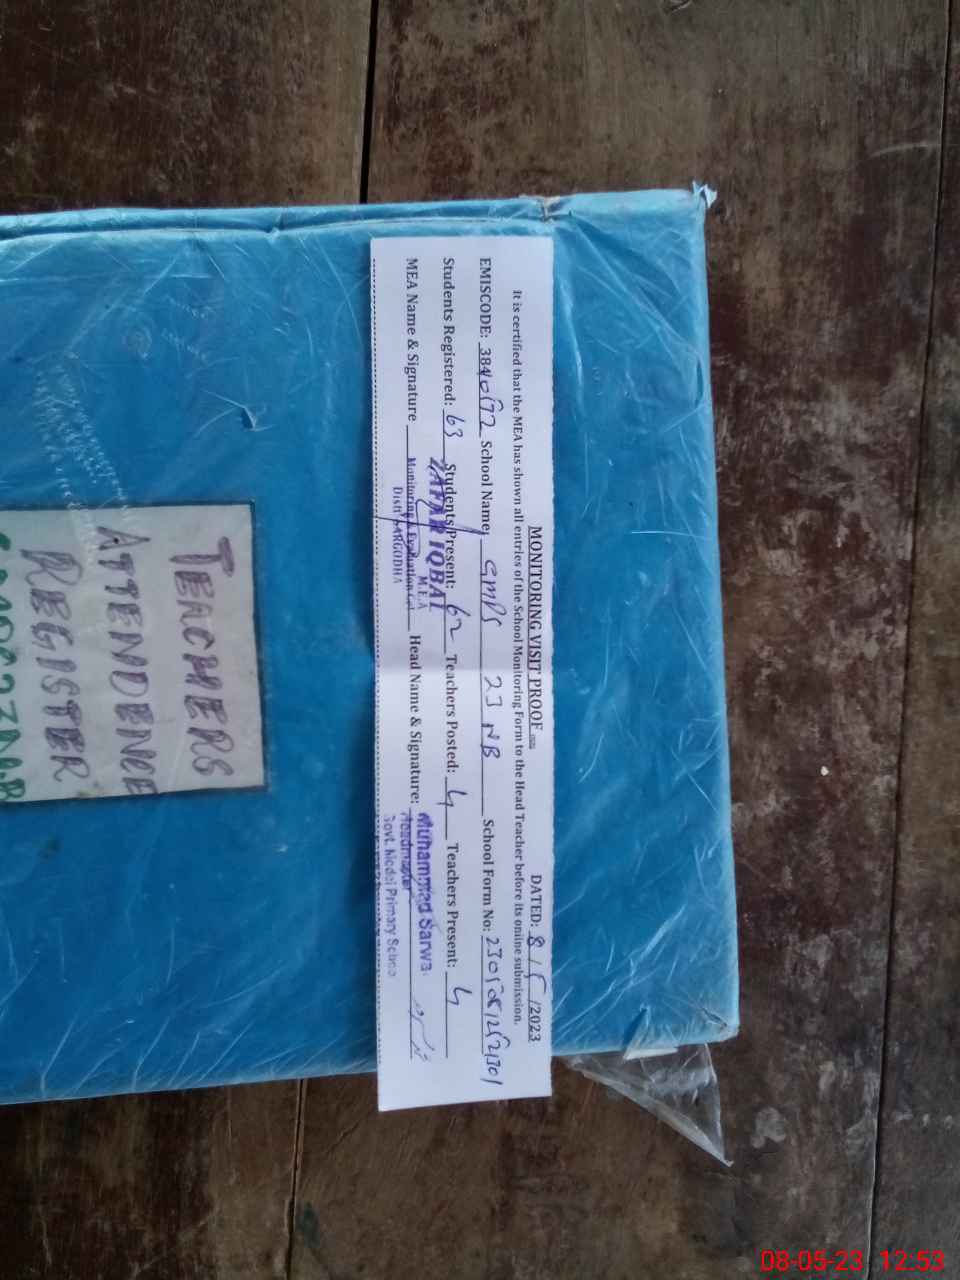 MONITORING VISIT PROOF
DATED: 8/5/2023
It is certified that the MEA has shown all entries of the School Monitoring Form to the Head Teacher before its online submission.
EMISCODE: 38410172 School Name: GMPS 23 NB School Form No:
Students Registered: 63 Students Present: 62 Teachers Posted: 4 Teachers Present: 4
MEA Name & Signature Head Name & Signature:
ZAFAR IQBAL
M.E.A
Monitoring & Evaluation Cel
Distt SARGODHA
Muhammad Sarwa
Headmaster
Govt. Model Primary School
TEACHERS
ATTENDENCE
REGISTER
08-05-23 12:53